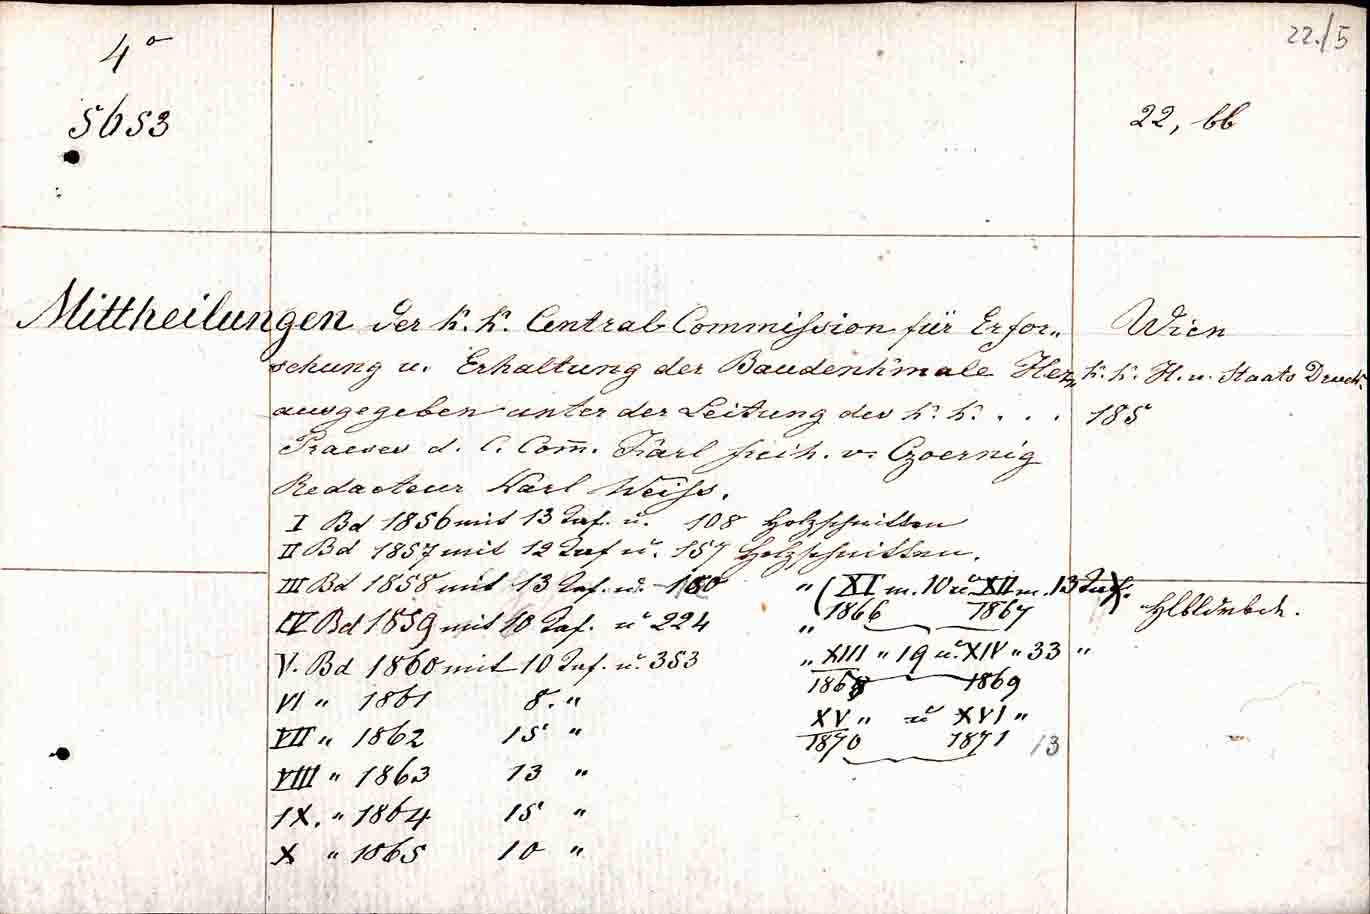 22./5
4°
5653
22, bb
Mittheilungen der k. k. Central-Commission für Erfor-
schung u. Erhaltung der Baudenkmale Her-
ausgegeben unter der Leitung des k. k. . . .
Praeses d. C. Com̅. Karl Freih. v. Czoernig
Redacteur Karl Weiss.
Wien
k. k. H. u. Staats Druck.
185
I Bd 1856 mit 13 Taf. u. 108 Holzschnitten
II Bd 1857 mit 12 Taf u. 157 Holzschnitten.
III Bd 1858 mit 13 Taf. u. 180 "
IV Bd 1859 mit 10 Taf. u 224 "
V. Bd 1860 mit 10 Taf. u. 353 "
VI " 1861 8. "
VII " 1862 15 "
VIII " 1863 13 "
IX. " 1864 15 "
X " 1865 10 "
(XI m. 10 u XII m. 13 Taf.
1866 1867
XIII " 19 u. XIV " 33 "
1868 1869
XV " u XVI "
1870 1871 13
Hlbldrbd.